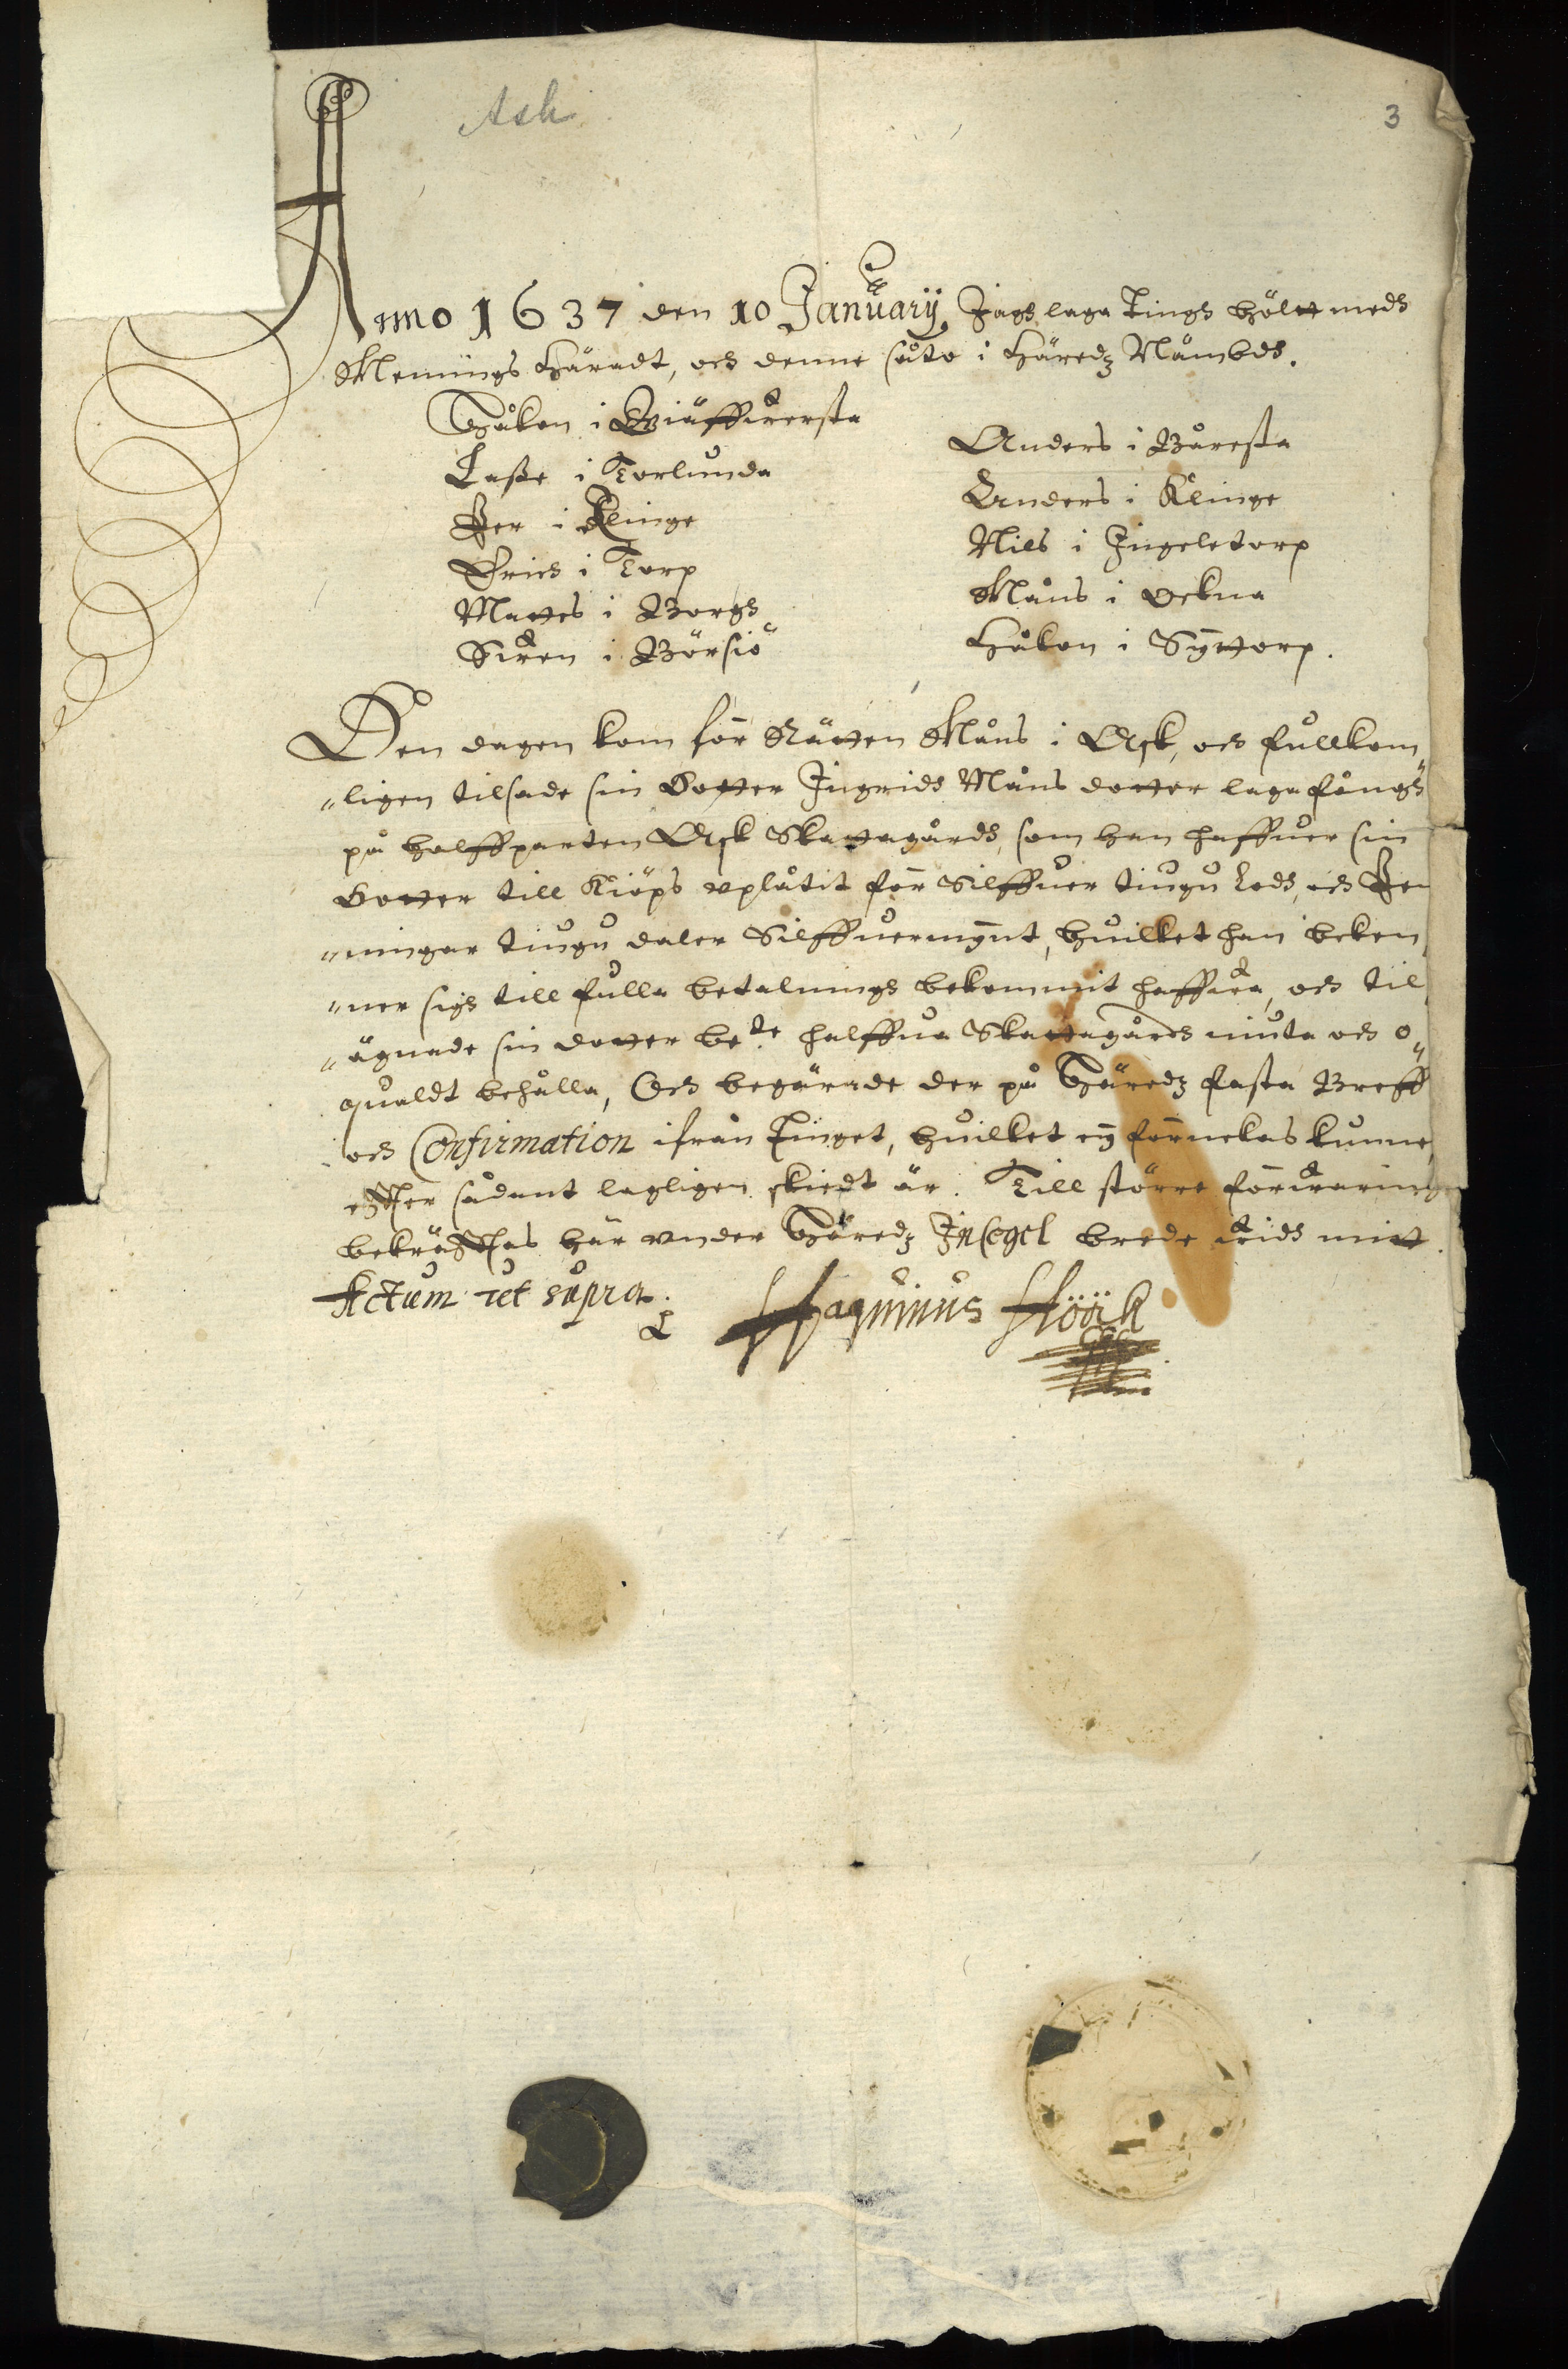 Ask
3
Anno 1637 den 10 January, Jagh laga Tingh höltt medh
Memings Häradt, och denne såto i Häredz Nämbdh.
Håkon i Giäffuersta
Lasse i Torlunda
Per i Klinge
Erich i Torp
Mattes i Borgh
Suen i Börsiö
Anders i Båresta
Anders i Klinge
Nils i Ingeletorp
Måns i Öckna
Håkon i Syttorp.
Den dagen kom för Rätten Måns i Ask, och fullkom„
„ligen tilsade sin Dotter Ingridh Måns dotter laga fångh
på halffparten Ask Skattagårdh, som han haffuer sin
Dotter till Kiöps vplåtit för Silffuer tiugu Lodh, och Pen
„ningar tiugu daler Silffuermynt, huilket han beken„
„ner sigh till fulla betalningh bekommit haffua, och til„
„ägnade sin dotter be:te halffua Skattagårdh niuta och o„
qualdt behålla, Och begärade der på Häredz fasta Breff
och Confirmation ifrån Tinget, huilket ey förnekas kunne,
effter sådant lagligen skiedt är. Till större förwaringh
bekräfftas här vnder Häredz Insegel brede widh mitt.
Actum ut supra.
Haquinus Höök